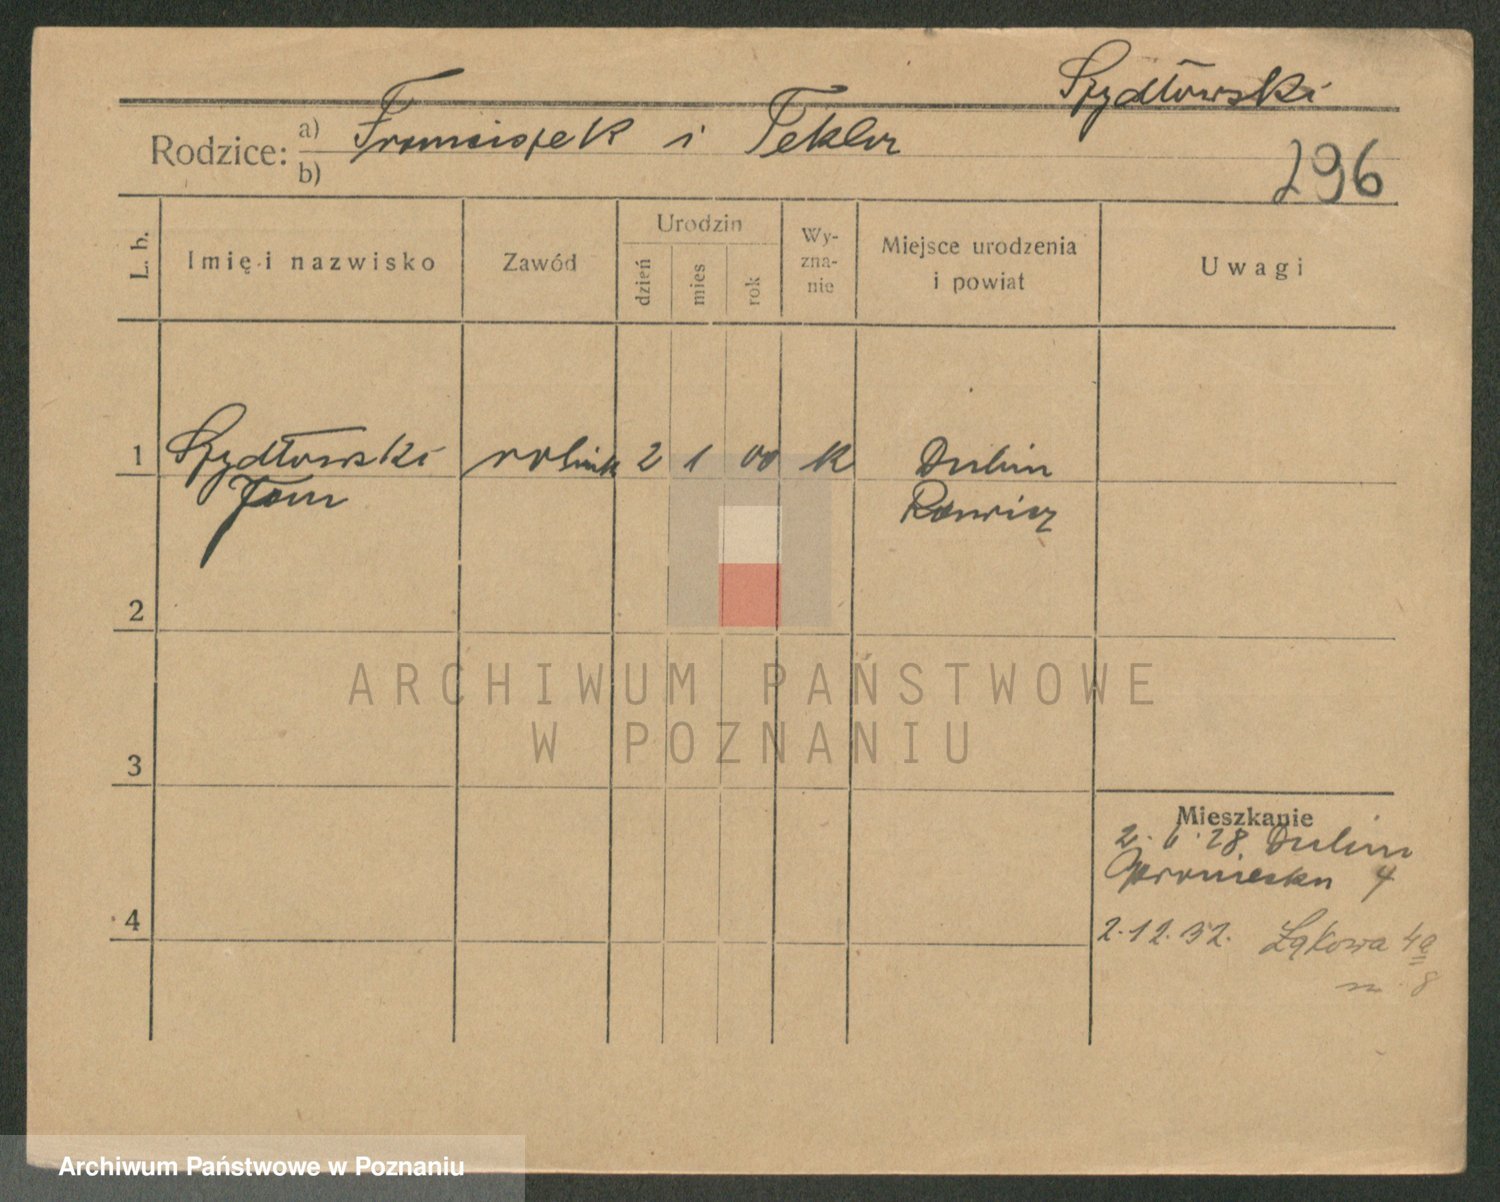 Szydłowski
Rodzice: a) Franciszek i Tekla
b)
296
L. b.
Imię i nazwisko
Zawód
Urodzin
dzień
mies
rok
Wy-
zna-
nie
Miejsce urodzenia
i powiat
Uwagi
1 Szydłowski rolnik 2 1 00 k Dubin
Jan Rawicz
2
3
4
ARCHIWUM PAŃSTWOWE
W POZNANIU
Mieszkanie
28 Dubin
4
2.12.32. Łąkowa 4a
m. 8
Archiwum Państwowe w Poznaniu